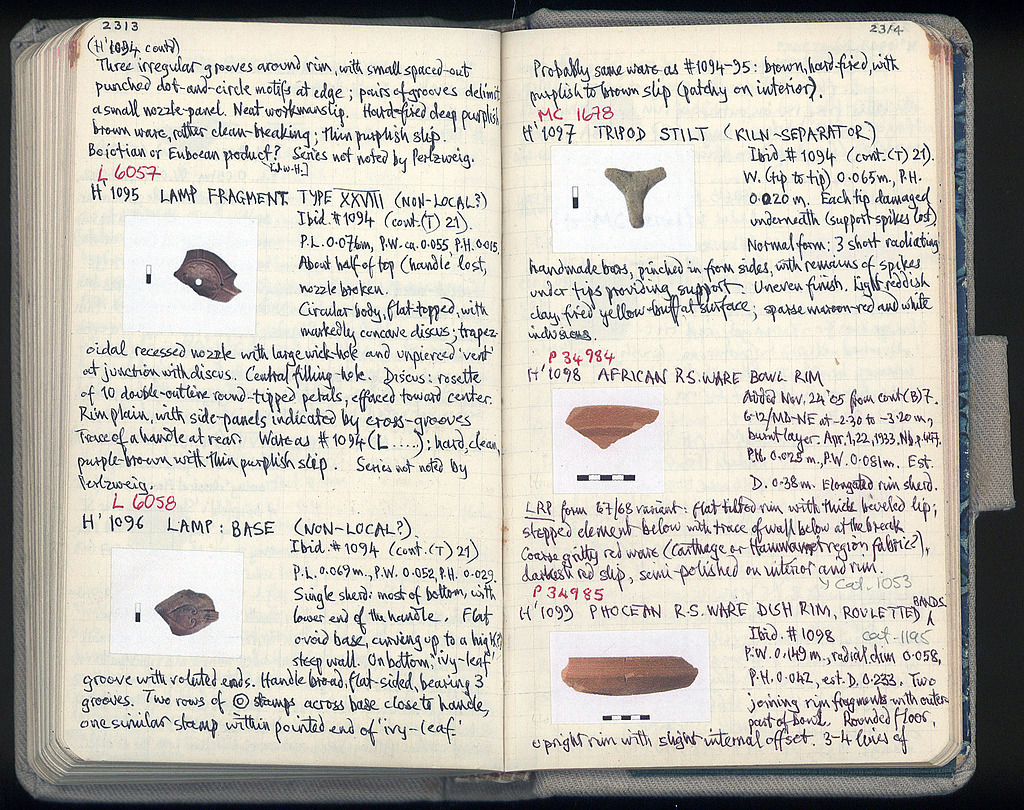 2313
(H'1094 contd)
Three irregular grooves around rim, with small spaced-out
punched dot-and-circle motifs at edge; pairs of grooves delimit
a small nozzle-panel. Neat workmanslip. Hard-fired deep purplish
brown ware, rather clean-breaking; thin purplish slip.
Boiotian or Euboean product? Series not noted by Perlzweig.
[J.W.H.]
L 6057
H'1095 LAMP FRAGMENT TYPE XXVIII (NON-LOCAL?)
Ibid. #1094 (cont. (T) 21).
P.L. 0.076m, P.W. ca. 0.055, P.H. 0.015.
About half of top (handle lost,
nozzle broken.
Circular body, flat-topped, with
markedly concave discus; trapez-
oidal recessed nozzle with large wick-hole and unpierced 'vent'
at junction with discus. Central filling-hole. Discus: rosette
of 10 double-outline round-tipped petals, effaced toward center.
Rim plain, with side-panels indicated by cross-grooves
Trace of a handle at rear. Ware as #1094 (L .....); hard, clean,
purple-brown with thin purplish slip. Series not noted by
Perlzweig.
L 6058
H'1096 LAMP: BASE (NON-LOCAL?)
Ibid. #1094 (cont. (T) 21)
P.L. 0.069m, P.W. 0.052, P.H. 0.029.
Single sherd: most of bottom, with
lower end of the handle. Flat
ovoid base, curving up to a high?
steep wall. On bottom, 'ivy-leaf'
groove with voluted ends. Handle broad, flat-sided, bearing 3
grooves. Two rows of ⊙ stamps across base close to handle,
one similar stamp within pointed end of 'ivy-leaf.'
2314
Probably same ware as #1094-95: brown, hard-fired, with
purplish to brown slip (patchy on interior).
MC 1678
H'1097 TRIPOD STILT (KILN-SEPARATOR)
Ibid. #1094 (cont. (T) 21).
W. (tip to tip) 0.065m, P.H.
0.020m. Each tip damaged
underneath (support spikes lost).
Normal form: 3 short radiating
handmade bars, pinched in from sides, with remains of spikes
under tips providing support. Uneven finish. Light reddish
clay, fired yellow-buff at surface; sparse maroon-red and white
inclusions.
P 34984
H'1098 AFRICAN R.S. WARE BOWL RIM
Added Nov. 24 '05 from cont (B) 7.
6-12/MB-NE at -2.30 to -3.20m,
burnt layer. Apr. 1, 22, 1933, Nb. p. 457.
P.H. 0.025m, P.W. 0.081m. Est.
D. 0.38m. Elongated rim sherd.
LRP form 67/68 variant: flat tilted rim with thick beveled lip;
stepped element below with trace of wall below at the break
Coarse gritty red ware (Carthage or Hammamet region fabric?),
darkish red slip, semi-polished on interior and rim.
Cat. 1053
P 34985
H'1099 PHOCEAN R.S. WARE DISH RIM, ROULETTED BANDS
Ibid. #1098 cat. 1195
P.W. 0.149m., radial dim 0.058,
P.H. 0.042, est. D. 0.233. Two
joining rim fragments with outer
part of bowl. Rounded floor,
upright rim with slight internal offset. 3-4 lines of